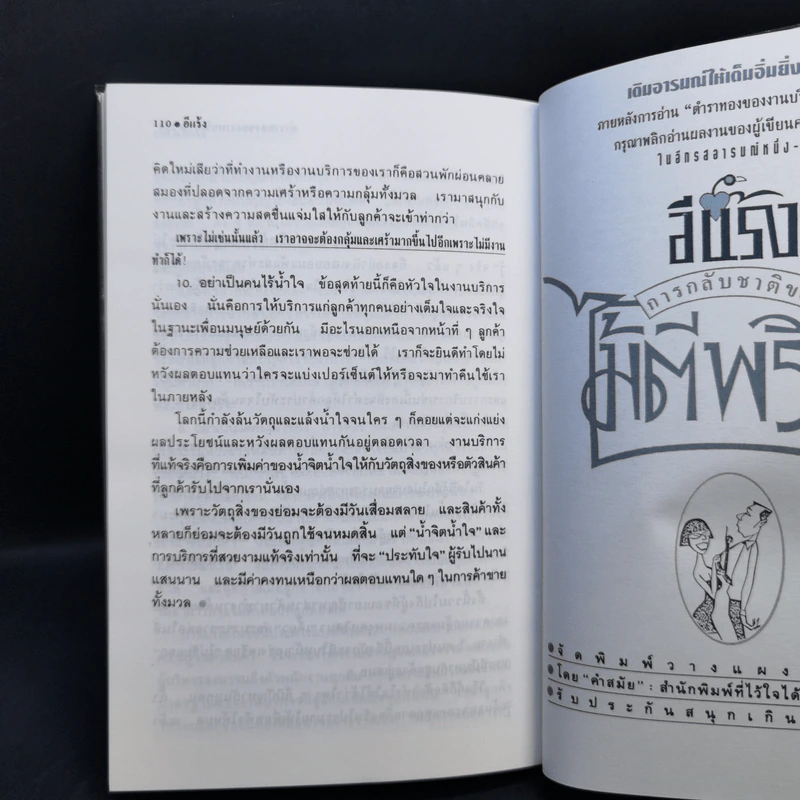 110 ● อีแร้ง
คิดใหม่เสียว่าที่ทำงานหรืองานบริการของเราก็คือสวนพักผ่อนคลาย
สมองที่ปลอดจากความเศร้าหรือความกลุ้มทั้งมวล เรามาสนุกกับ
งานและสร้างความสดชื่นแจ่มใสให้กับลูกค้าจะเข้าท่ากว่า
เพราะไม่เช่นนั้นแล้ว เราอาจจะต้องกลุ้มและเศร้ามากขึ้นไปอีกเพราะไม่มีงาน
ทำก็ได้!
10. อย่าเป็นคนไร้น้ำใจ ข้อสุดท้ายนี้ก็คือหัวใจในงานบริการ
นั่นเอง นั่นคือการให้บริการแก่ลูกค้าทุกคนอย่างเต็มใจและจริงใจ
ในฐานะเพื่อนมนุษย์ด้วยกัน มีอะไรนอกเหนือจากหน้าที่ ๆ ลูกค้า
ต้องการความช่วยเหลือและเราพอจะช่วยได้ เราก็จะยินดีทำโดยไม่
หวังผลตอบแทนว่าใครจะแบ่งเปอร์เซ็นต์ให้หรือจะมาทำคืนใช้เรา
ในภายหลัง
โลกนี้กำลังล้นวัตถุและแล้งน้ำใจจนใคร ๆ ก็คอยแต่จะแก่งแย่ง
ผลประโยชน์และหวังผลตอบแทนกันอยู่ตลอดเวลา งานบริการ
ที่แท้จริงคือการเพิ่มค่าของน้ำจิตน้ำใจให้กับวัตถุสิ่งของหรือตัวสินค้า
ที่ลูกค้ารับไปจากเรานั่นเอง
เพราะวัตถุสิ่งของย่อมจะต้องมีวันเสื่อมสลาย และสินค้าทั้ง
หลายก็ย่อมจะต้องมีวันถูกใช้จนหมดสิ้น แต่ "น้ำจิตน้ำใจ" และ
การบริการที่สวยงามแท้จริงเท่านั้น ที่จะ "ประทับใจ" ผู้รับไปนาน
แสนนาน และมีค่าคงทนเหนือกว่าผลตอบแทนใด ๆ ในการค้าขาย
ทั้งมวล ●
เติมอารมณ์ให้เต็มอิ่มยิ่ง
ภายหลังการอ่าน "ตำราทองของงานบริ
กรุณาพลิกอ่านผลงานของผู้เขียนค
ในอีกรสอารมณ์หนึ่ง-
อีแร้ง
การกลับชาติข
●จัดพิมพ์วางแผง
●โดย "คำสมัย" : สำนักพิมพ์ที่ไว้ใจได้
●รับประกันสนุกเกิน